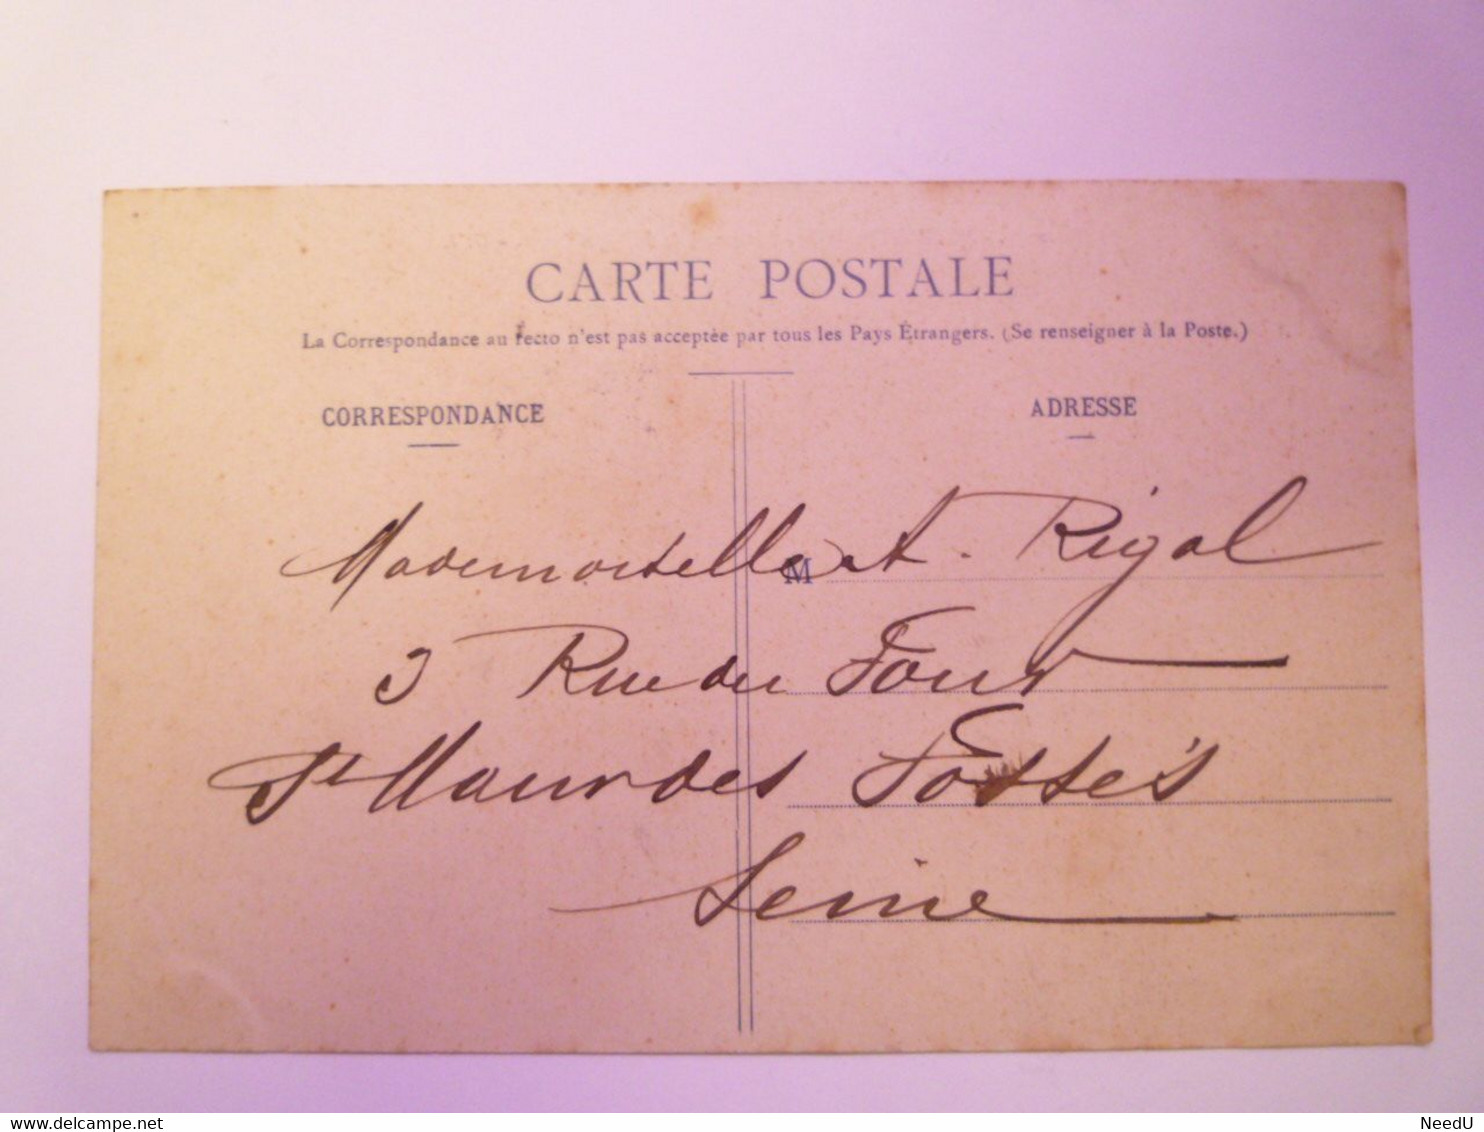 CARTE POSTALE
La Correspondance au recto n'est pas acceptée par tous les Pays Étrangers. (Se renseigner à la Poste.)
CORRESPONDANCE
ADRESSE
M
Mademoiselle A. Rigal
3 Rue du Four
St Maur des Fossés
Seine
www.delcampe.net
NeedU